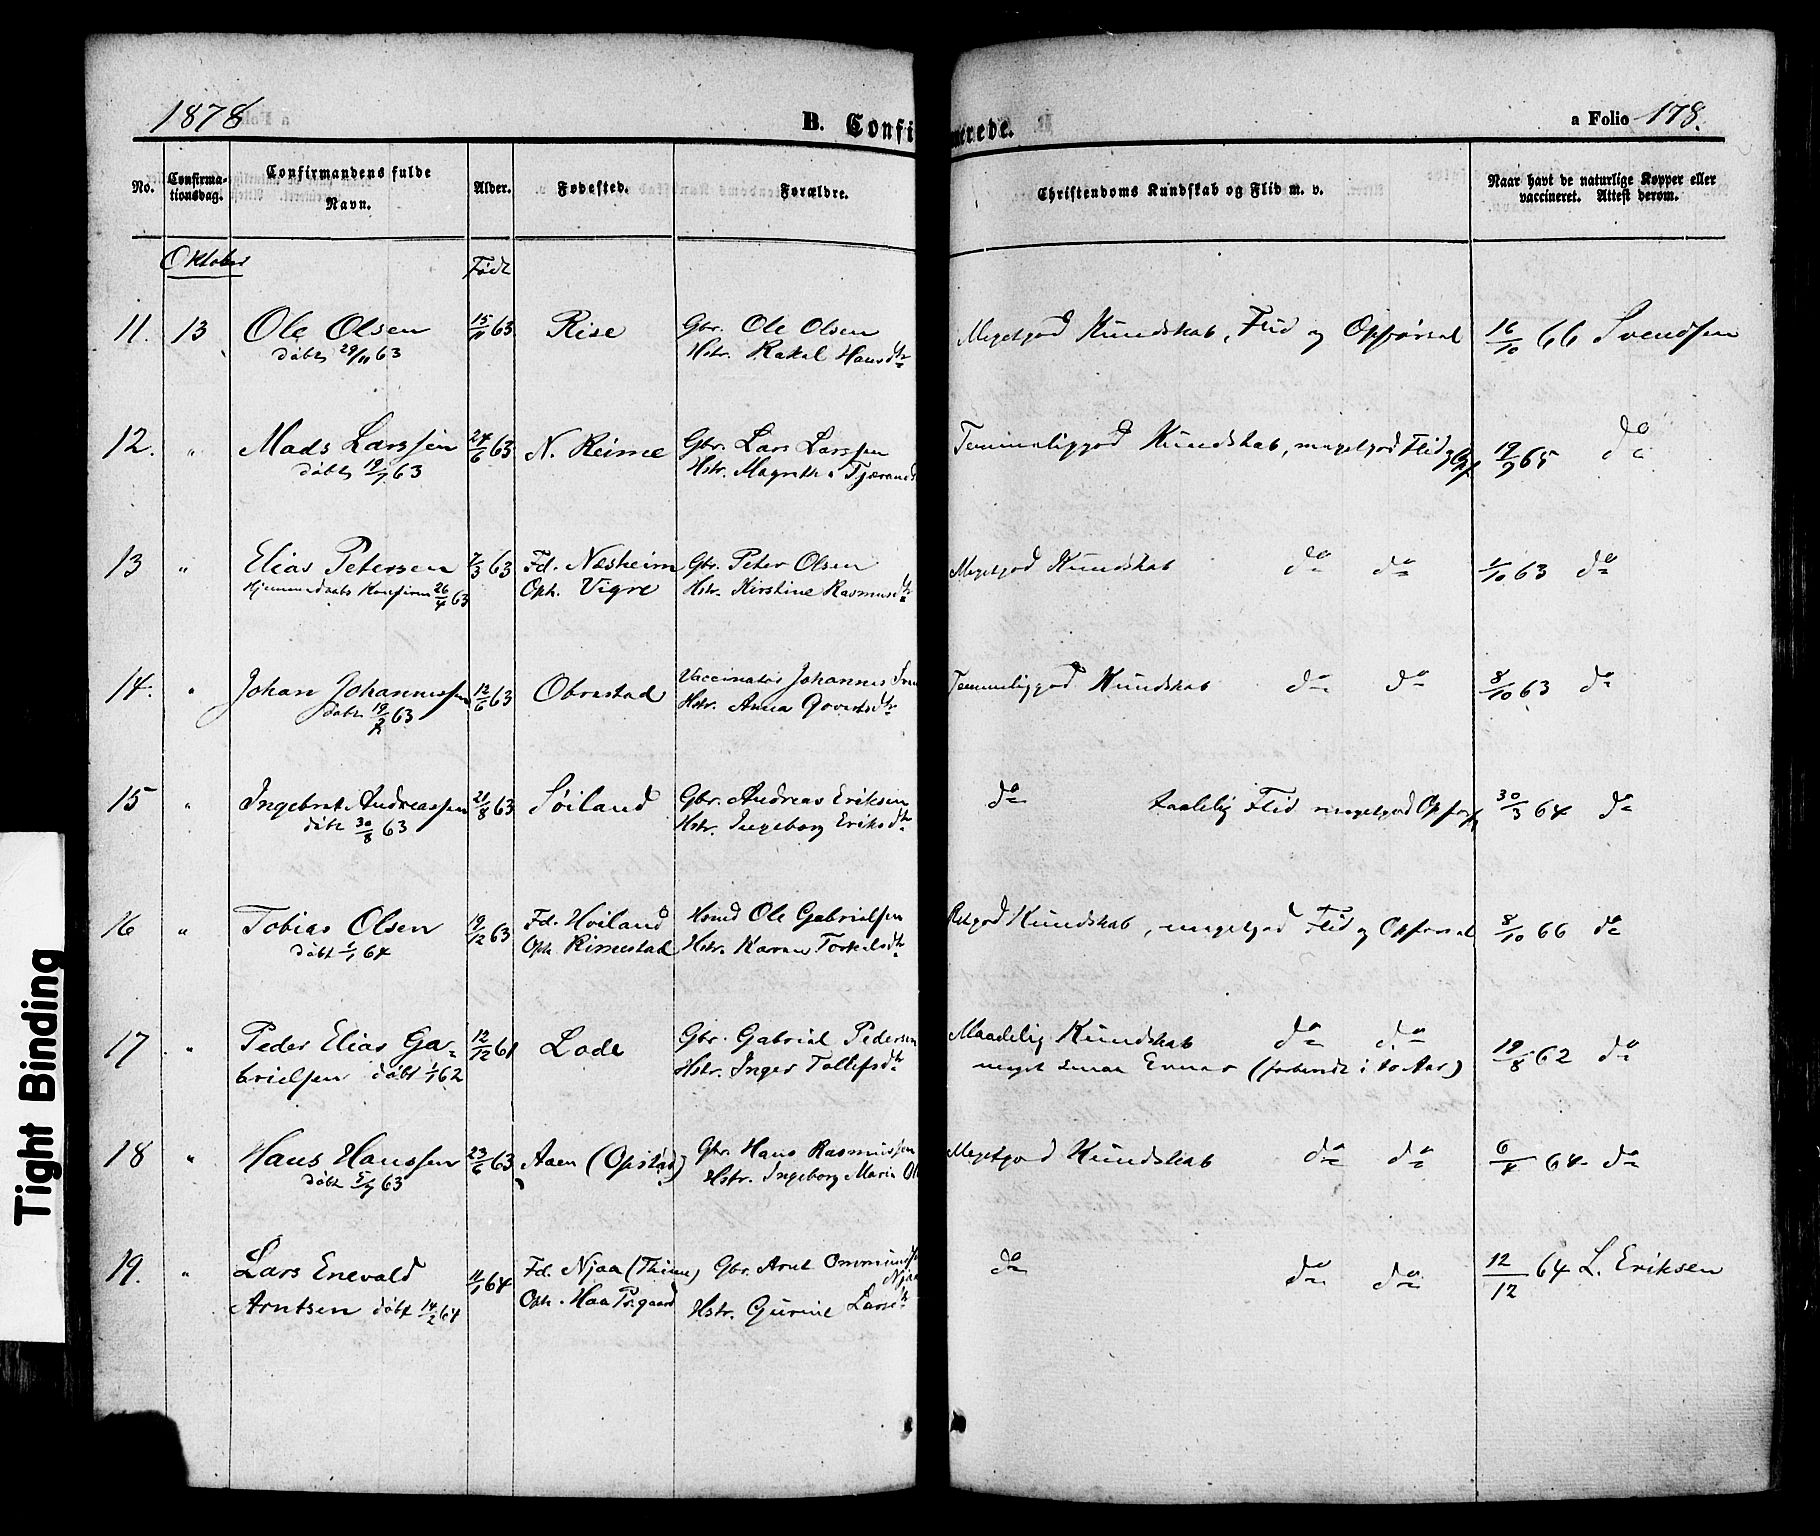 1878
B. Confi
merede.
a Folio 178.
No.
Confirma-
tionsdag.
Confirmandens fulde
Navn.
Alder.
Fødested.
Forældre.
Christendoms Kundskab og Flid m. v.
Naar havt de naturlige Kopper eller
vaccineret. Attest derom.
Oktober
Født
11. 13 Ole Olsen 15/11 63 Rise Gbr. Ole Olsen Megetgod Kundskab, Flid og Opførsel 16/10 66 Svendsen
døbt 29/11 63 Hstr. Rakel Hansdtr
12. " Mads Larssen 24/6 63 N. Reime Gbr. Lars Larssen Temmeliggod Kundskab, megetgod Flid og Opf 19/9 65 do
døbt 19/7 63 Hstr. Magrethe Tjærand
13 " Elias Petersen 7/3 63 Fd. Næsheim Gbr. Peter Olsen Megetgod Kundskab do do 1/10 63 do
Hjemmedaabs Konfirm 26/4 63 Oph. Vigre Hstr. Kirstine Rasmusdtr
14. " Johan Johannessen 12/6 63 Obrestad Vaccinatør Johannes Temmeliggod Kundskab do do 8/10 63 do
døbt 19/7 63 Hstr. Anna Govertsdtr
15 " Ingebret Andreassen 21/8 63 Søiland Gbr. Andreas Eriksen do taalelig Flid megetgod Opførs 30/3 64 do
døbt 30/8 63 Hstr. Ingeborg Eriksdtr
16 " Tobias Olsen 19/12 63 Fd. Hoiland Hsmd Ole Gabrielsen Retgod Kundskab, megetgod Flid og Opførsel 8/10 66 do
døbt 1/1 64 Oph. Rimestad Hstr. Karen Torkelsdtr
17. " Peder Elias Ga- 12/12 61 Lode Gbr. Gabriel Pedersen Maadelig Kundskab do do 19/8 62 do
brielsen døbt 1/1 62 Hstr. Inger Tollefsdtr meget smaa Evner (forberedt i to Aar)
18 " Hans Hanssen 23/6 63 Aaen (Opstad) Gbr. Hans Rasmussen Megetgod Kundskab do do 6/4 64 do
døbt 5/7 63 Hstr. Ingeborg Marie Ol
19. " Lars Enevald 11/1 64 Fd. Njaa (Thime) Gbr. Arnt Ommundsen do do do 12/12 64 L. Eriksen
Njaa
Arntsen døbt 14/2 64 Oph. Haa Prgaard Hstr. Gurine Larsdtr
Tight Binding